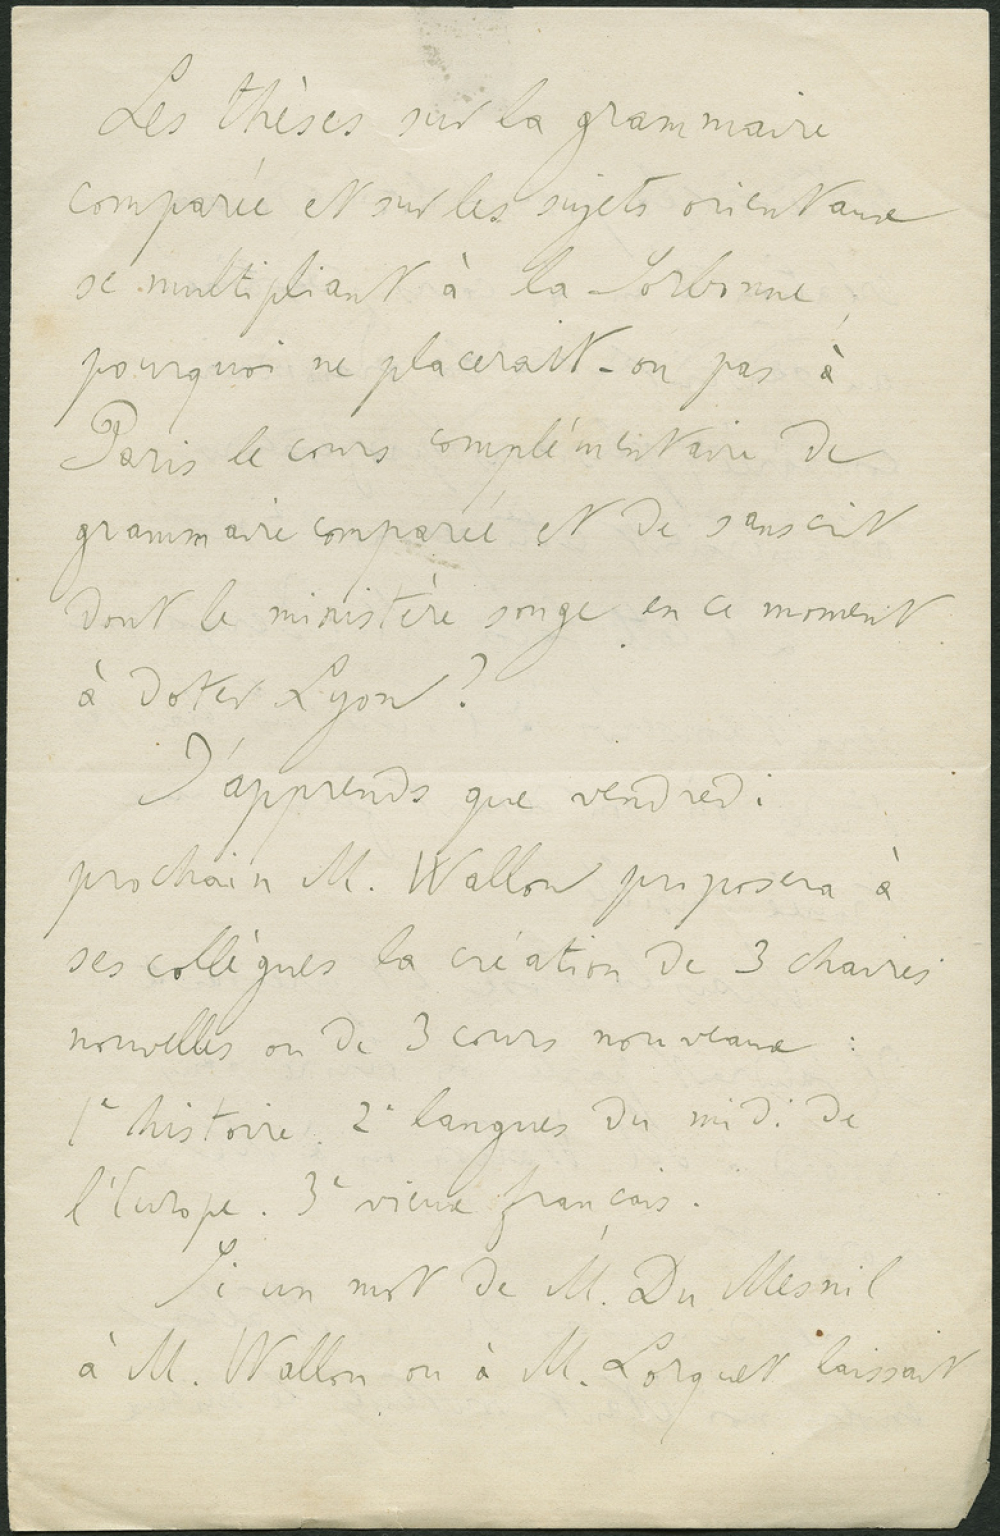 Les thèses sur la grammaire
comparée et sur les sujets orientaux
se multipliant à la Sorbonne,
pourquoi ne placerait-on pas à
Paris le cours complémentaire de
grammaire comparée et de sanscrit
dont le ministère songe en ce moment
à doter Lyon ?
J'apprends que vendredi
prochain M. Wallon proposera à
ses collègues la création de 3 chaires
nouvelles ou de 3 cours nouveaux :
1e histoire. 2e langues du midi de
l'Europe. 3e vieux français.
Si un mot de M. Du Mesnil
à M. Wallon ou à M. Lorquet laissait